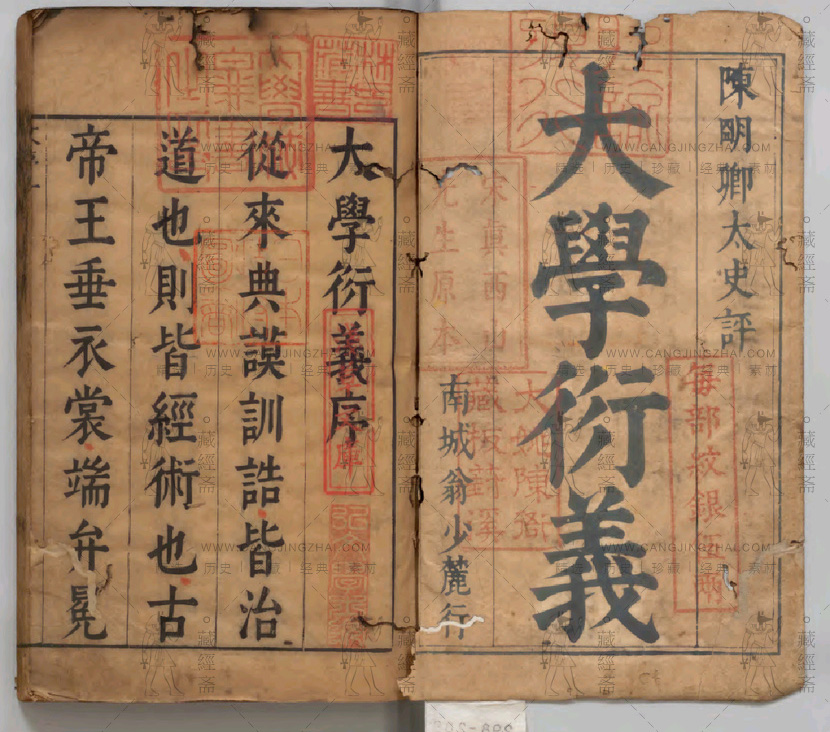 陳明卿太史評
大學衍義
南城翁少麓行
宋真西山
先生原本
每部紋銀伍兩
大學衍義序
從來典謨訓誥皆治
道也則皆經術也古
帝王垂衣裳端弁冕
藏經斋
WWW.CANGJINGZHAI.COM
历史 | 珍藏 | 经典 | 素材